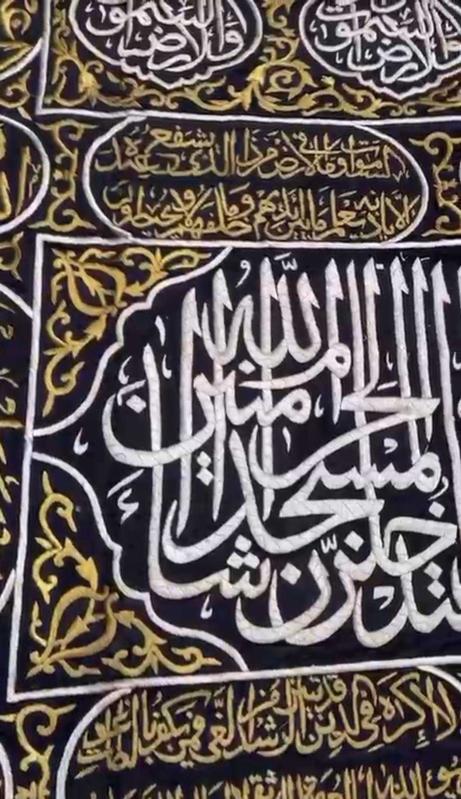 السموات والارض
السموات والارض
السموات وما في الارض من ذا الذي يشفع عنده
الا باذنه يعلم ما بين ايديهم وما خلفهم ولا يحيطون
لتدخلن المسجد الحرام ان شاء الله امنين
لا اكراه في الدين قد تبين الرشد من الغي فمن يكفر بالطاغوت